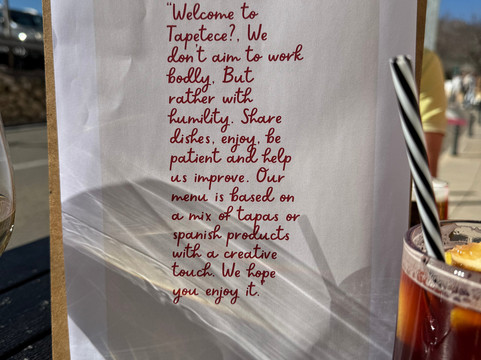 "Welcome to
Tapetece?, We
don't aim to work
bodly, But
rather with
humility. Share
dishes, enjoy, be
patient and help
us improve. Our
menu is based on
a mix of tapas or
spanish products
with a creative
touch. We hope
you enjoy it."